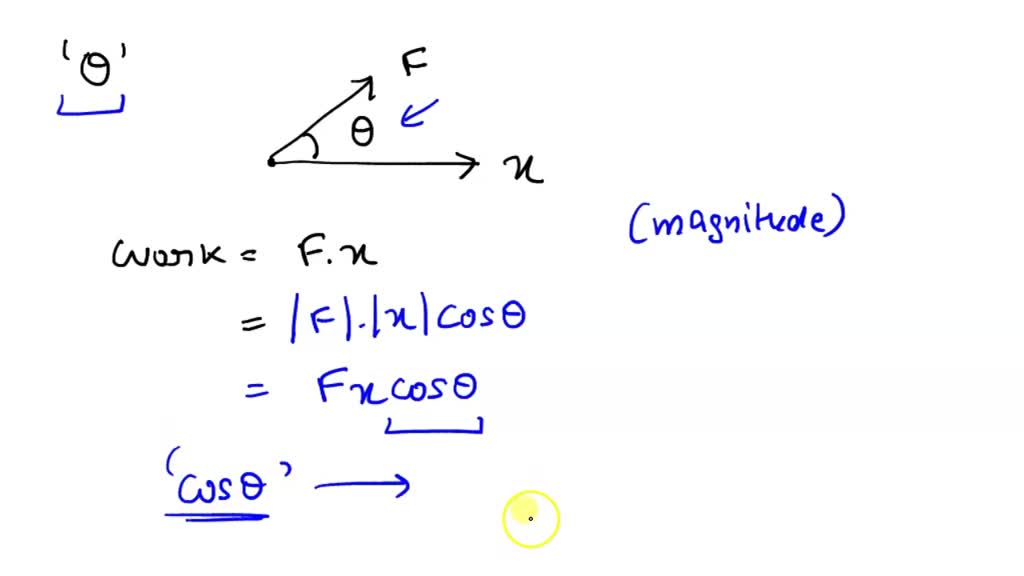 'θ'
F
θ
x
(magnitude)
work = F.x
= |F|.|x|cosθ
= Fxcosθ
'cosθ' →